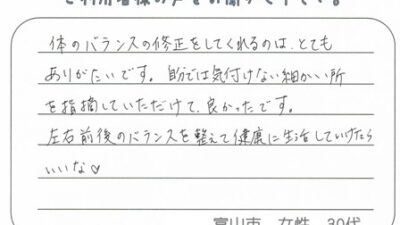 ご利用者様の声をお聞かせ下さい。
体のバランスの修正をしてくれるのは、とても
ありがたいです。自分では気付けない細かい所
を指摘していただけて、良かったです。
左右前後のバランスを整えて健康に生活していけたら
いいな♡
富山市 女性 30代